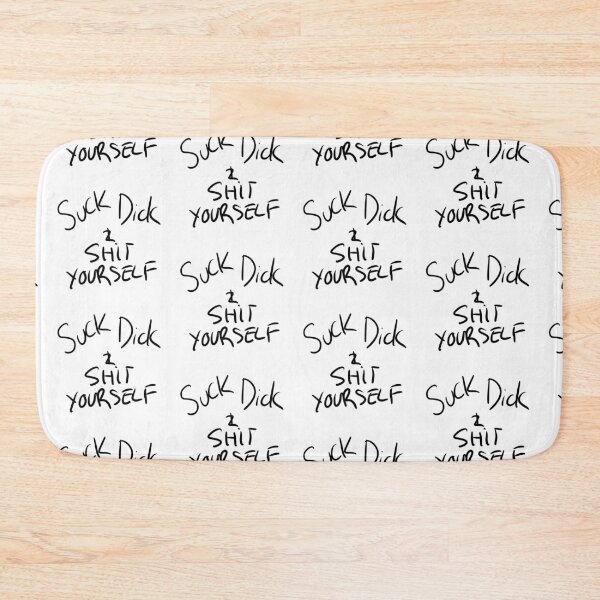 YOURSELF
Suck Dick
&
SHiT
YOURSELF
Suck Dick
&
SHiT
YOURSELF
Suck Dick
Suck Dick
&
SHiT
YOURSELF
Suck Dick
&
SHiT
YOURSELF
Suck Dick
&
SHiT
YOURSELF
YOURSELF
Suck Dick
&
SHiT
YOURSELF
Suck Dick
&
SHiT
YOURSELF
Suck Dick
Suck Dick
&
SHiT
YOURSELF
Suck Dick
&
SHiT
YOURSELF
Suck Dick
&
SHiT
YOURSELF